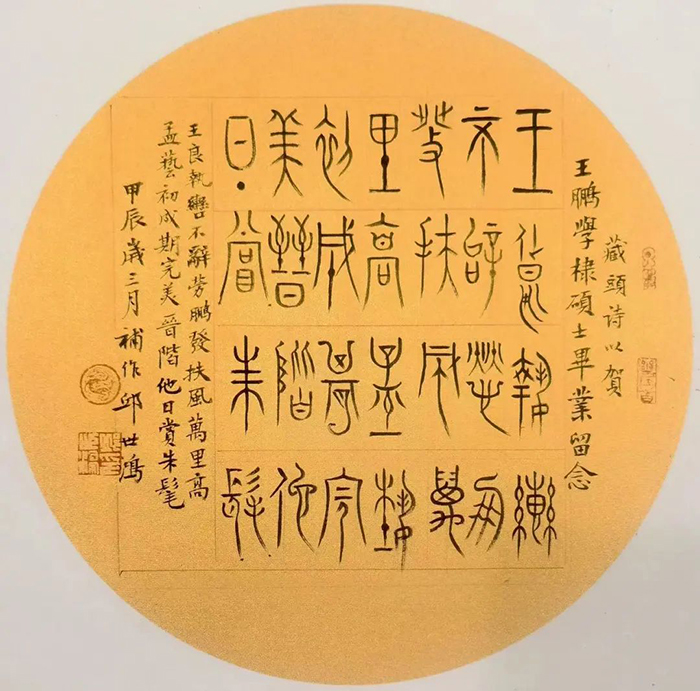 藏頭诗以賀
王鵬學棣碩士畢業留念
王良執轡
不辭勞鵬
發扶風萬
里高孟藝
初成期完
美晉階他
日賞朱髦
王良執轡不辭勞鵬發扶風萬里高
孟藝初成期完美晉階他日賞朱髦
甲辰歲三月補作邱世鴻